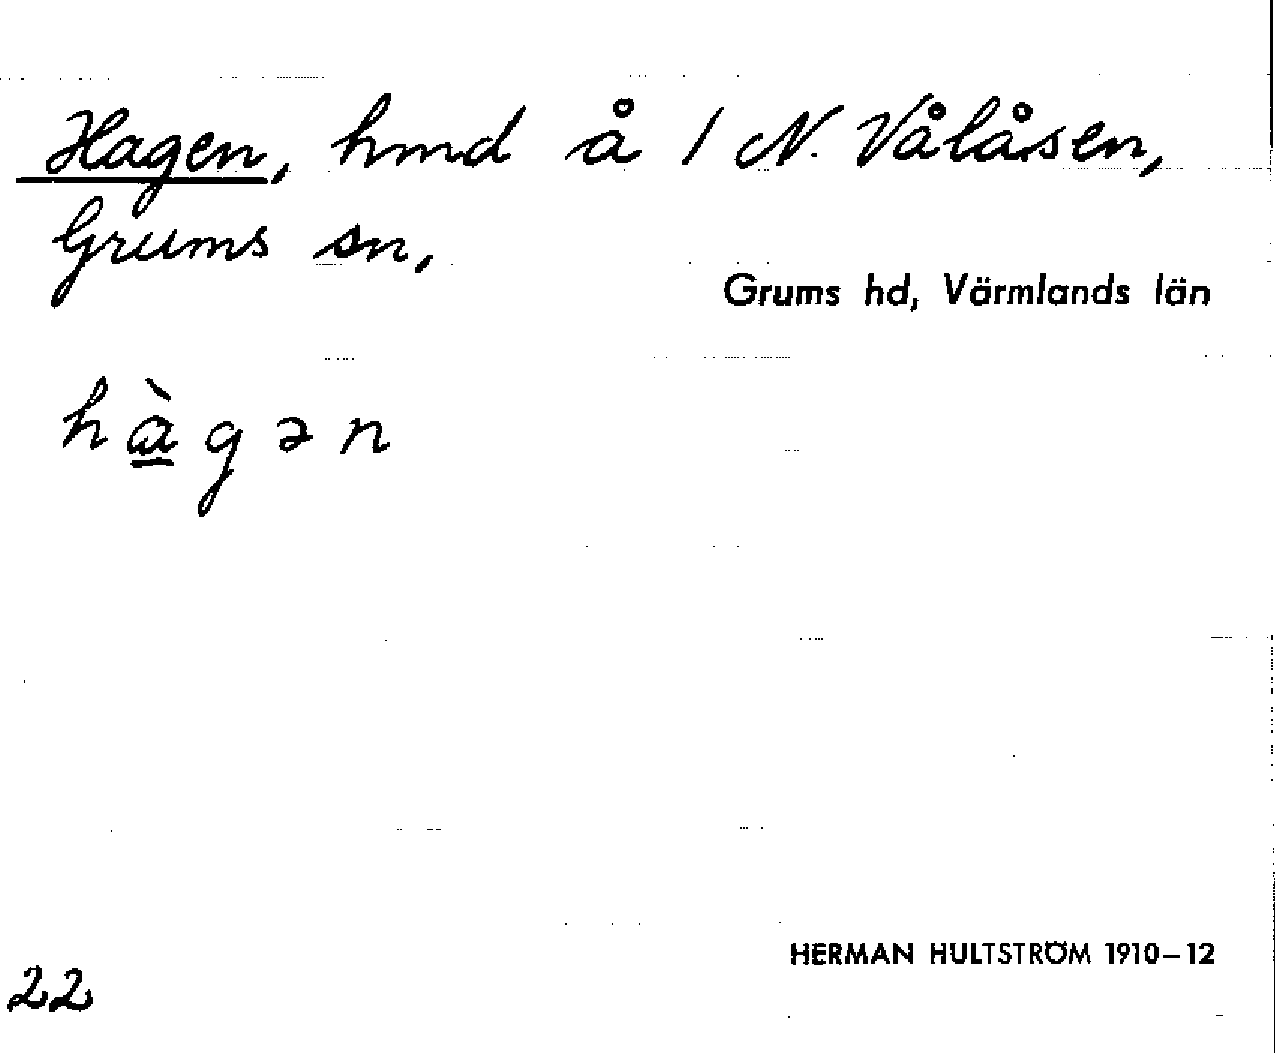 Hagen, hmd å 1 N. Vålåsen,
Grums sn,
Grums hd, Värmlands län
hàgən
HERMAN HULTSTRÖM 1910–12
22